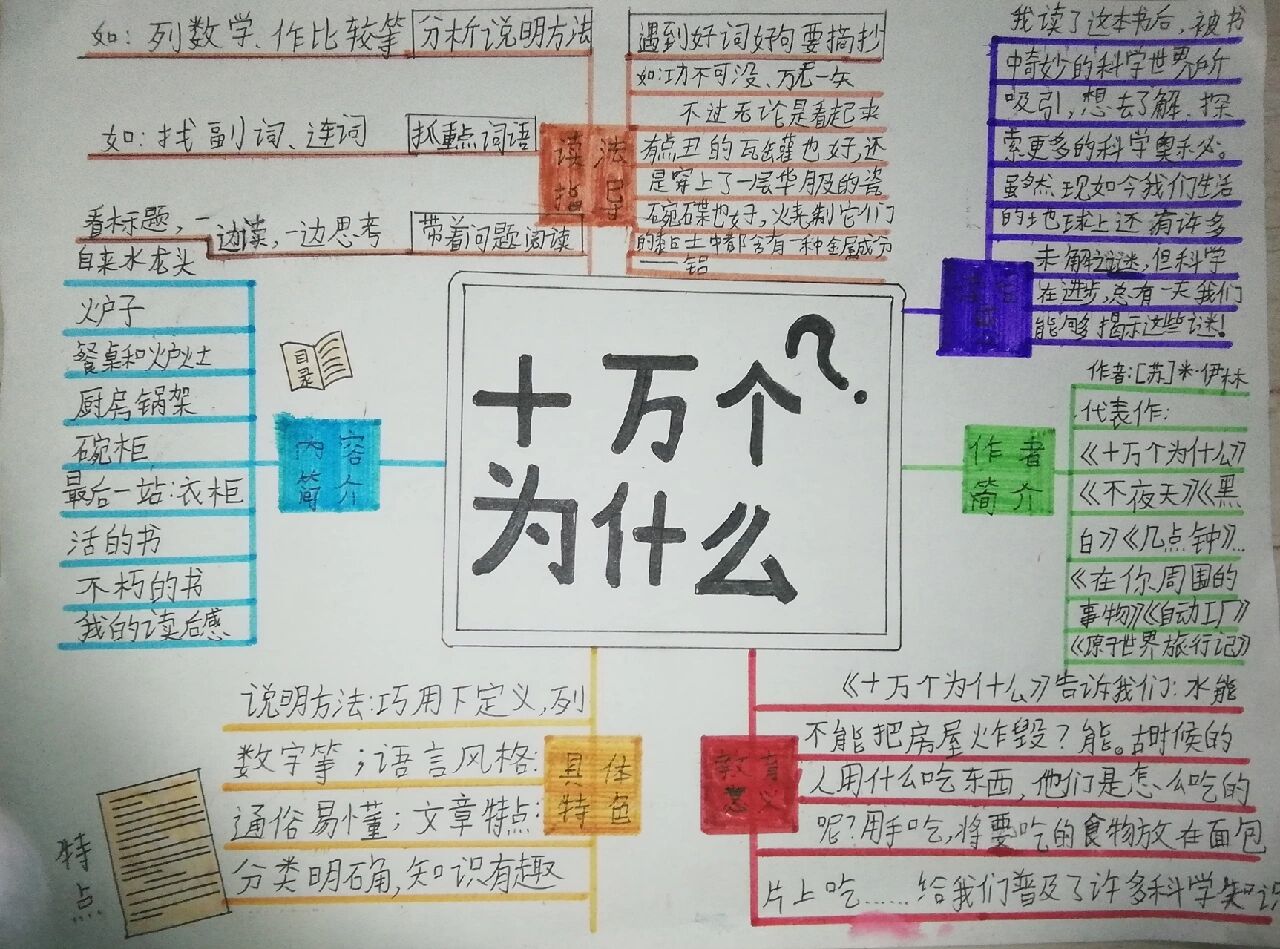 十万个
为什么?
读法
指导
如：列数学、作比较等
分析说明方法
如：找副词、连词
抓重点词语
看标题，一边读，一边思考
带着问题阅读
遇到好词好句要摘抄
如：功不可没、万无一失
不过无论是看起来
有点丑的瓦罐也好，还
是穿上了一层华月及的瓷
碗碟也好，火尧制它们
的黏土中都含有一种金属成分
——铝
我读了这本书后，被书
中奇妙的科学世界所
吸引，想去了解、探
索更多的科学奥秘。
虽然现如今我们生活
的地球上还有许多
未解之谜，但科学
在进步，总有一天我们
能够揭示这些谜！
内容
简介
自来水龙头
火炉子
餐桌和炉灶
厨房锅架
碗柜
最后一站：衣柜
活的书
不朽的书
我的读后感
目录
作者
简介
作者：[苏]米·伊林
代表作：
《十万个为什么》
《不夜天》《黑
白》《几点钟》…
《在你周围的
事物》《自动工厂》
《原子世界旅行记》
具体
特色
说明方法：巧用下定义，列
数字等；语言风格：
通俗易懂；文章特点：
分类明确，知识有趣
特点
教育
意义
《十万个为什么》告诉我们：水能
不能把房屋炸毁？能。古时候的
人用什么吃东西，他们是怎么吃的
呢？用手吃，将要吃的食物放在面包
片上吃……给我们普及了许多科学知识